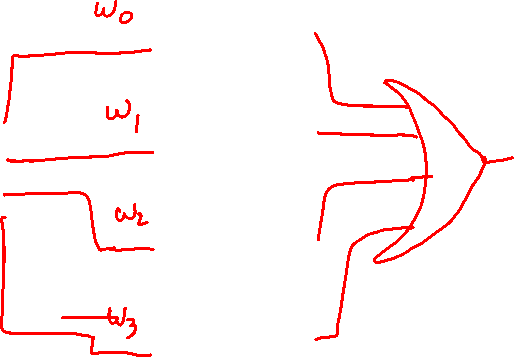 w₀
w₁
w₂
w₃